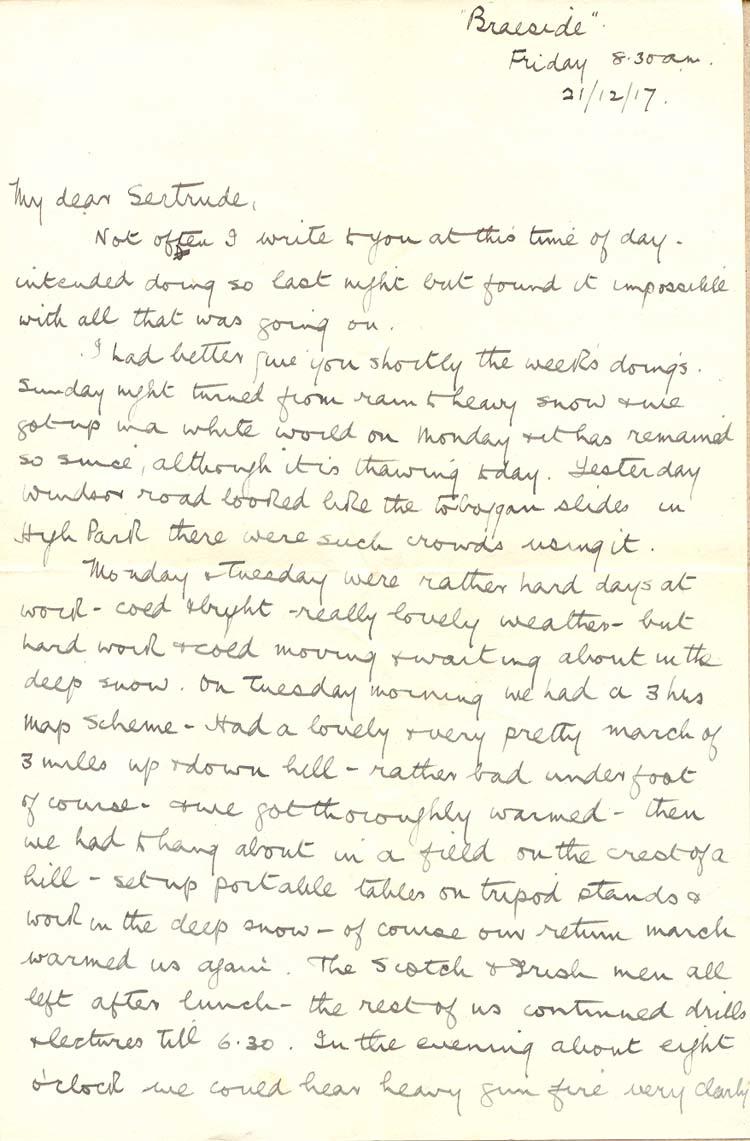 "Braeside".
Friday 8.30 a.m.
21/12/17.
My dear Gertrude,
Not often I write to you at this time of day -
intended doing so last night but found it impossible
with all that was going on.
I had better give you shortly the week's doings.
Sunday night turned from rain to heavy snow & we
got up in a white world on Monday & it has remained
so since, although it is thawing today. Yesterday
Windsor road looked like the toboggan slides in
High Park there were such crowds using it.
Monday & Tuesday were rather hard days at
work - cold & bright - really lovely weather - but
hard work & cold moving & waiting about in the
deep snow. On Tuesday morning we had a 3 hrs
map scheme - Had a lovely & very pretty march of
3 miles up & down hill - rather bad under foot
of course - & we got thoroughly warmed - then
we had to hang about in a field on the crest of a
hill - set up portable tables on tripod stands &
work in the deep snow - of course our return march
warmed us again. The Scotch & Irish men all
left after lunch - the rest of us continued drills
& lectures till 6.30. In the evening about eight
o'clock we could hear heavy gun fire very clearly